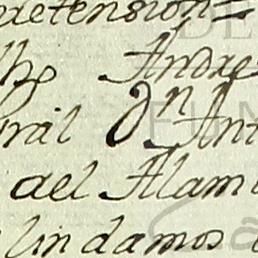 retension=
lho Andre
ral Dn. Ant
del Alam
lindamos